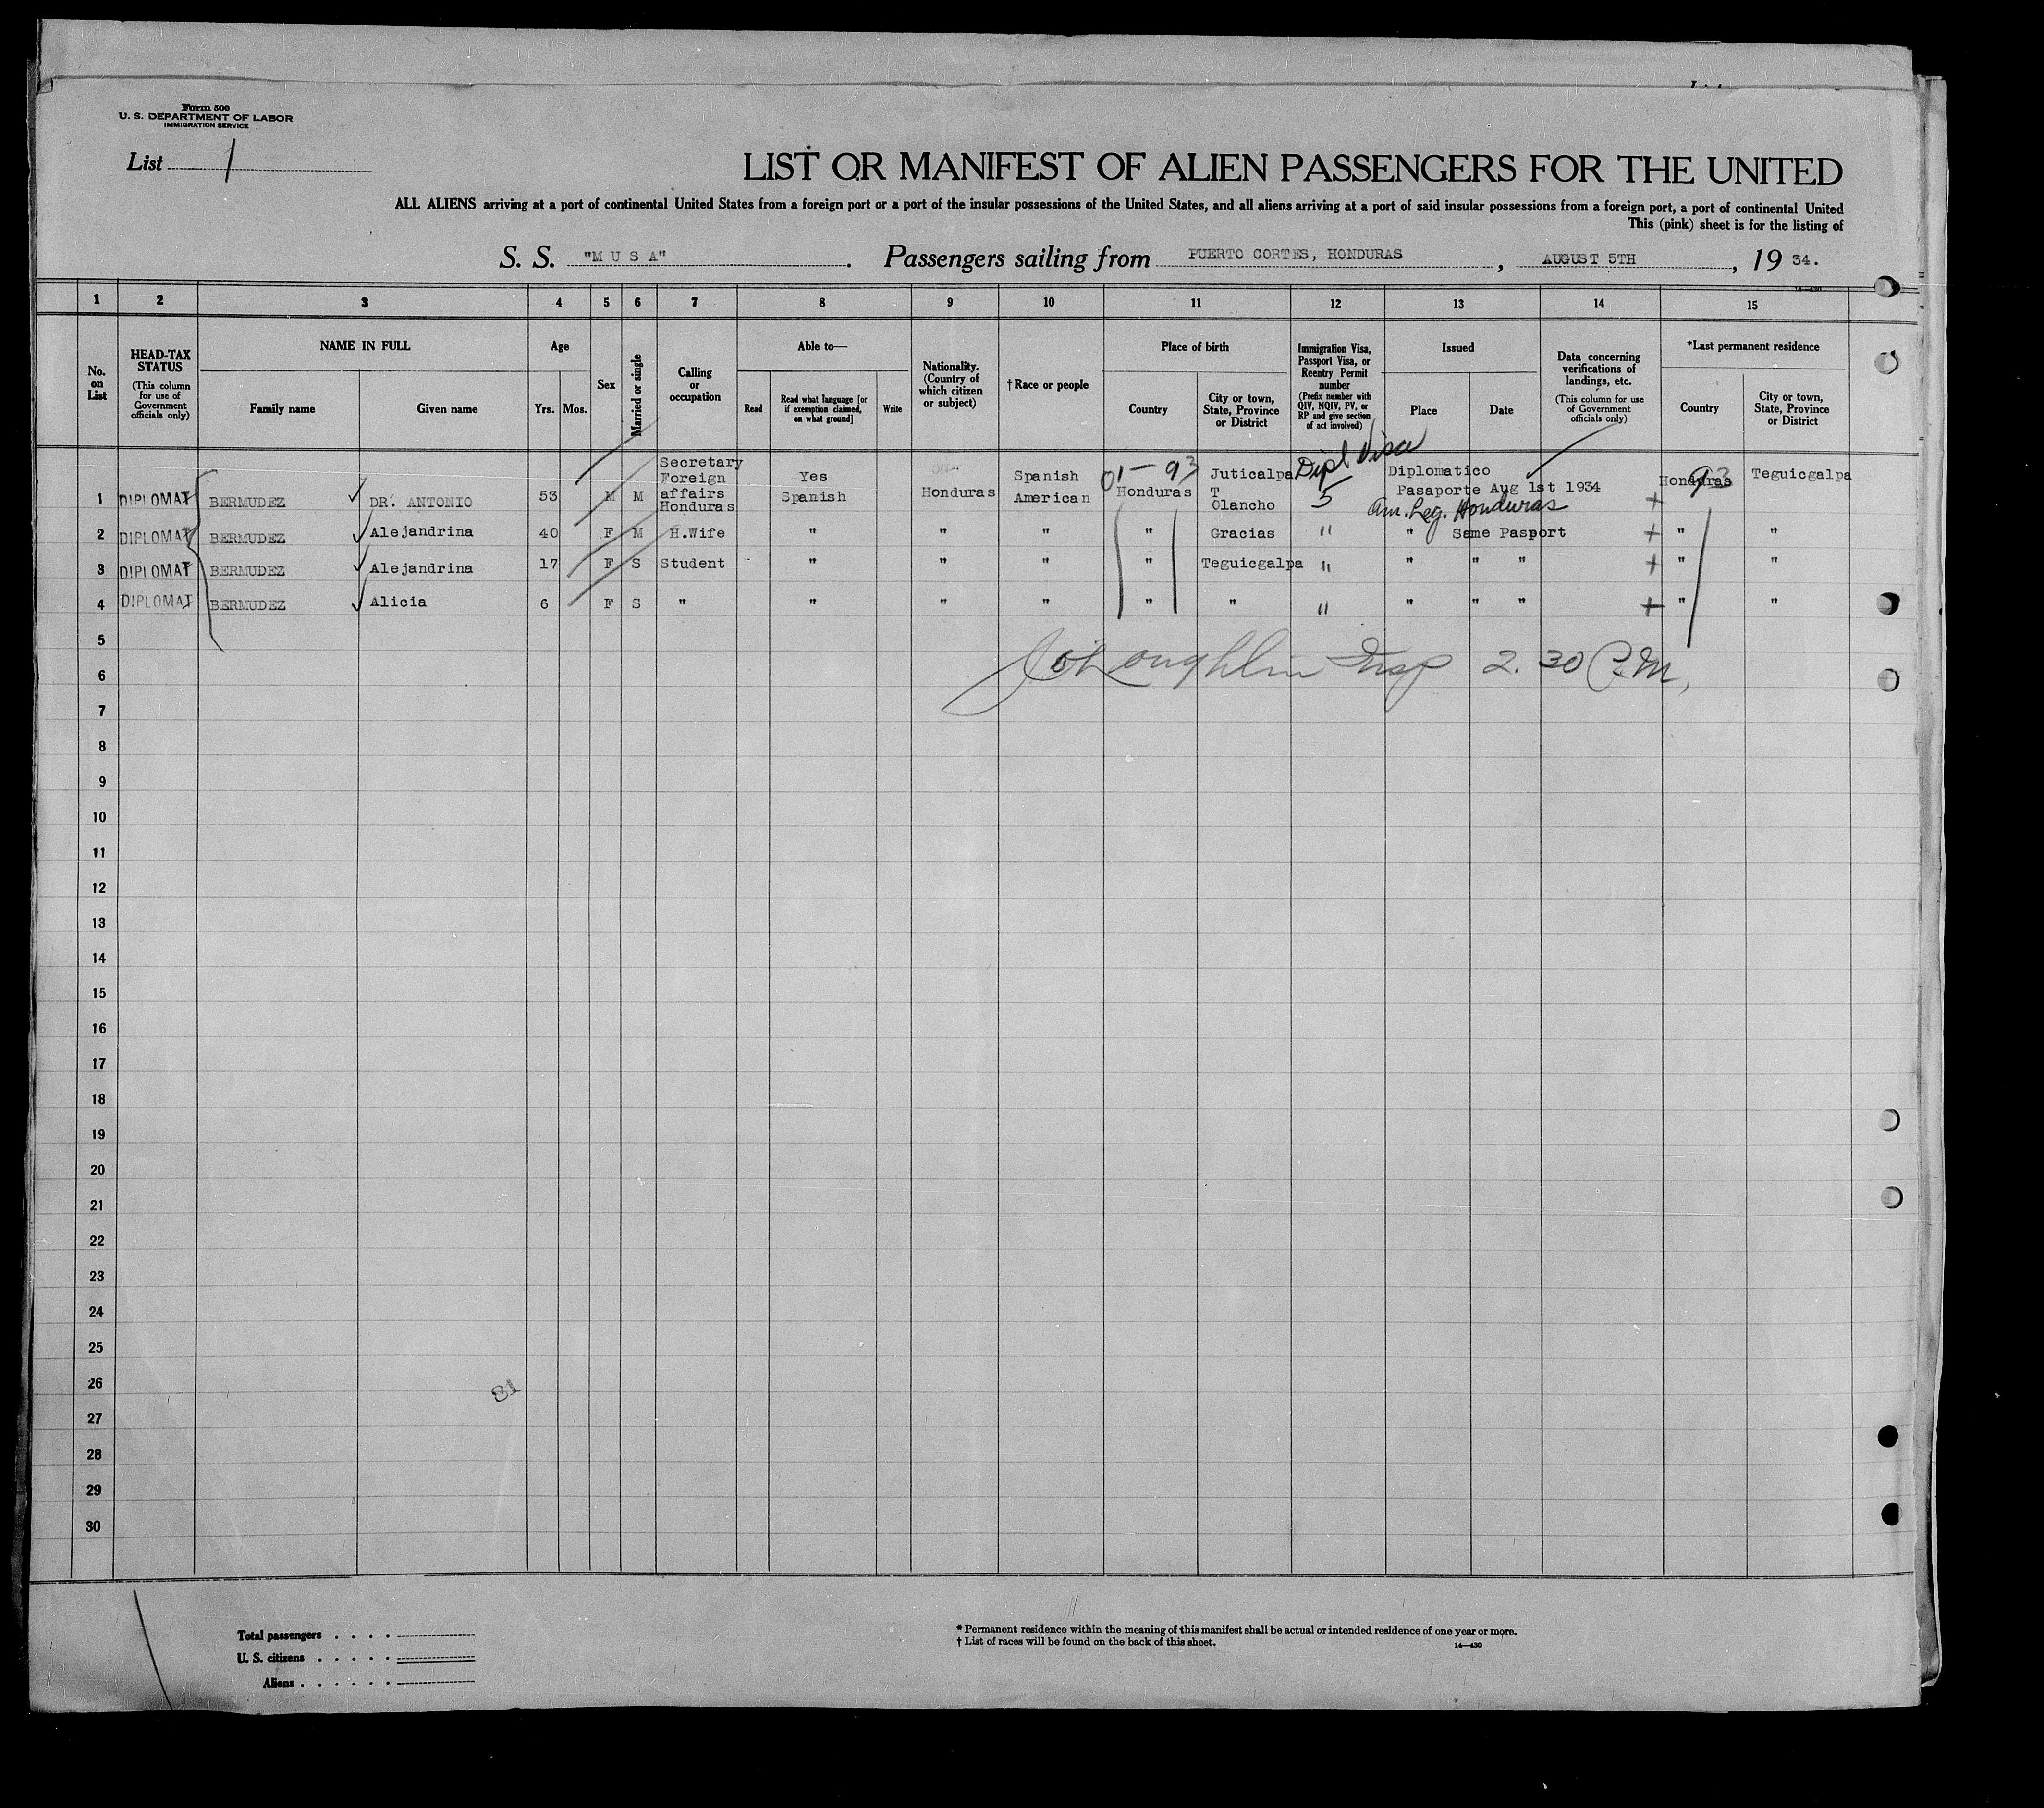 Form 500
U. S. DEPARTMENT OF LABOR
IMMIGRATION SERVICE
List 1
LIST OR MANIFEST OF ALIEN PASSENGERS FOR THE UNITED
ALL ALIENS arriving at a port of continental United States from a foreign port or a port of the insular possessions of the United States, and all aliens arriving at a port of said insular possessions from a foreign port, a port of continental United
This (pink) sheet is for the listing of
S. S. "M U S A" . Passengers sailing from PUERTO CORTES, HONDURAS , AUGUST 5TH , 19 34.
1 2 3 4 5 6 7 8 9 10 11 12 13 14 15
No. on List
HEAD-TAX STATUS (This column for use of Government officials only)
NAME IN FULL
Family name
Given name
Age
Yrs.
Mos.
Sex
Married or single
Calling or occupation
Able to—
Read
Read what language [or if exemption claimed, on what ground]
Write
Nationality. (Country of which citizen or subject)
† Race or people
Place of birth
Country
City or town, State, Province or District
Immigration Visa, Passport Visa, or Reentry Permit number (Prefix number with QIV, NQIV, PV, or RP and give section of act involved)
Issued
Place
Date
Data concerning verifications of landings, etc. (This column for use of Government officials only)
*Last permanent residence
Country
City or town, State, Province or District
1 DIPLOMAT BERMUDEZ DR. ANTONIO 53 M M Secretary Foreign affairs Honduras Yes Spanish Honduras Spanish American 01-93 Honduras Juticalpa T Olancho Dipl Visa 5 Diplomatico Pasaporte Aug 1st 1934 Am. Leg. Honduras + Honduras 93 Teguicgalpa
2 DIPLOMAT BERMUDEZ Alejandrina 40 F M H.Wife " " " " Gracias " " Same Pasport + " "
3 DIPLOMAT BERMUDEZ Alejandrina 17 F S Student " " " " Teguicgalpa " " " " + " "
4 DIPLOMAT BERMUDEZ Alicia 6 F S " " " " " " " " " " + " "
5
Loughlin Insp 2.30 P.M.
6
7
8
9
10
11
12
13
14
15
16
17
18
19
20
21
22
23
24
25
26
81
27
28
29
30
Total passengers
U. S. citizens
Aliens
* Permanent residence within the meaning of this manifest shall be actual or intended residence of one year or more.
† List of races will be found on the back of this sheet.
14—430